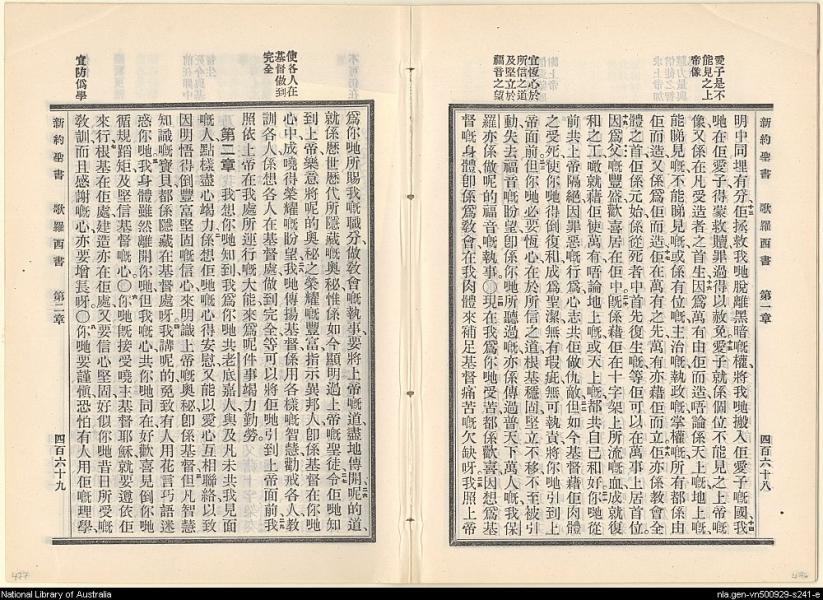 新約聖書　歌羅西書　第一章　四百六十八
愛子是不能見之上帝像
宜恆心於所信之道及堅立於福音之望
明中同埋有分佢拯救我哋脫離黑暗嘅權將我哋搬入佢愛子嘅國我
哋在佢愛子得蒙救贖罪過得以赦免愛子就係個位不能見之上帝嘅
像又係在凡受造者之首生因爲萬有由佢而造唔論係天上嘅地上嘅
能睇見嘅不能睇見嘅或係有位嘅主治嘅執政嘅掌權嘅所有都係由
佢而造又係爲佢而造佢在萬有之先萬有亦藉佢而立佢亦係教會全
體之首佢係元始係從死者中首先復生嘅等佢可以在萬事上居首位
因爲父嘅豐盛歡喜居在佢中旣係藉佢在十字架上所流嘅血成就復
和之工噉就藉佢使萬有唔論地上嘅或天上嘅都共自己和好你哋從
前共上帝隔絕因罪惡嘅行爲心志共佢做仇敵但如今基督藉佢肉體
之受死使你哋得倒復和成爲聖潔無有瑕疵無可執責將你哋引到上
帝面前但你哋必要恆心在於所信之道根基穩固堅立不移不至被引
動失去福音嘅盼望卽係你哋所聽過嘅亦係傳過普天下萬人嘅我保
羅亦係做呢的福音嘅執事〇現在我爲你哋受苦都係歡喜因想爲基
督嘅身體卽係爲敎會在我肉體來補足基督痛苦嘅欠缺呀我照上帝
使各人在基督做到完全
宜防僞學
爲你哋所賜我嘅職分做敎會嘅執事要將上帝嘅道盡地傳開呢的道
就係歷世歷代所隱藏嘅奧秘惟係如今顯明過上帝嘅聖徒令佢哋知
到上帝樂意將呢的奧秘之榮耀嘅豐富指示異邦人卽係基督在你哋
心中成曉得榮耀嘅盼望我哋傳揚基督係用各樣嘅智慧勸戒各人敎
訓各人係想各人在基督處做到完全等可以將佢哋引到上帝面前我
照依上帝在我處所運行嘅大能來爲呢件事竭力勤勞。
第二章　我想你哋知到我爲你哋共老底嘉人與及凡未共我見面
嘅人點樣盡心竭力係想佢哋嘅心得安慰又能以愛心互相聯絡以致
因明悟得倒豐富堅固嘅信心來明識上帝嘅奧秘卽係基督但凡智慧
知識嘅寶貝都係隱藏在基督處呀我講呢的免致有人用花言巧語迷
惑你哋我身體雖然離開你哋但我嘅心共你哋同在好歡喜見倒你哋
循規蹈矩及堅信基督嘅心〇你哋旣接受曉主基督耶穌就要遵依佢
來行根基在佢處建造亦在佢處又要信心堅固好似你哋昔日所受嘅
敎訓而且感謝嘅心亦要增長呀〇你哋要謹愼恐怕有人用佢嘅理學
新約聖書　歌羅西書　第二章　四百六十九
477
476
National Library of Australia
nla.gen-vn500929-s241-e